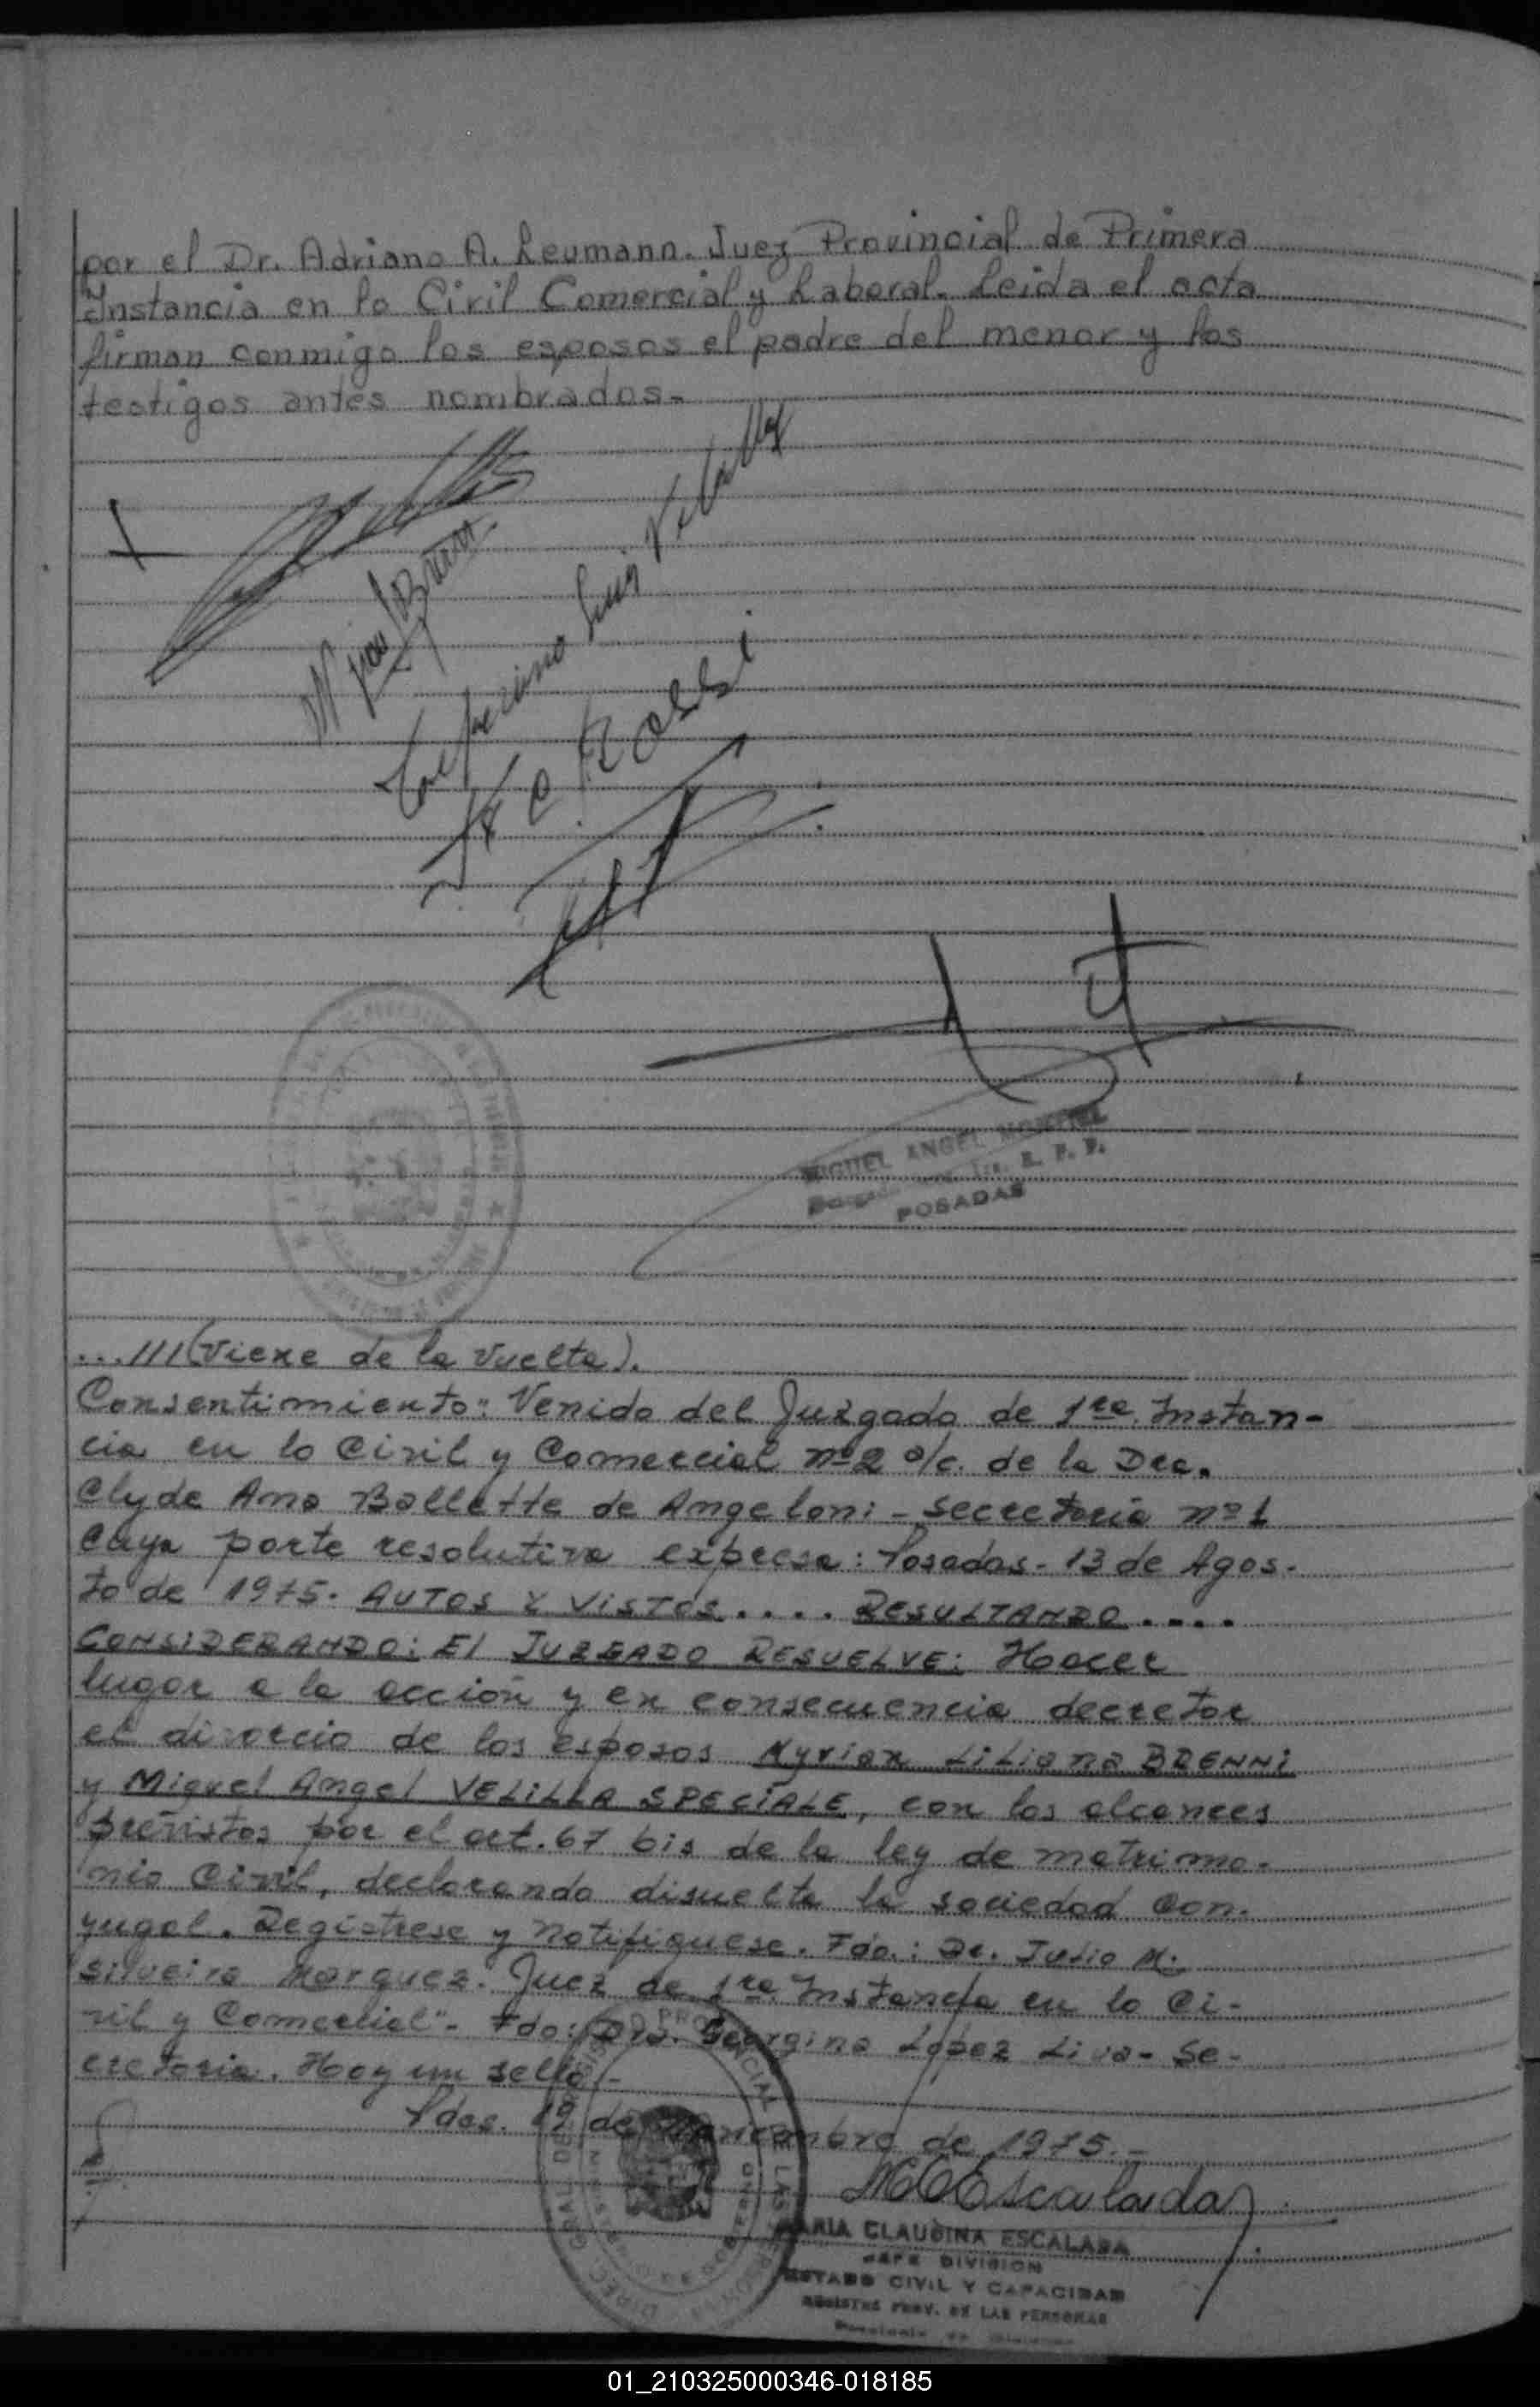 por el Dr. Adriano A. Leumann. Juez Provincial de Primera
Instancia en lo Civil Comercial y Laboral. Leida el acta
firman conmigo los esposos el padre del menor y los
testigos antes nombrados.-
Rossi
MIGUEL ANGEL
POSADAS
...///(Viene de la Vuelta).
Consentimiento: Venido del Juzgado de 1ra. Instan-
cia en lo Civil y Comercial nº2 a/c. de la Dra.
Clyde Ana Ballette de Angeloni - Secretaria nº1
Cuya parte resolutiva expresa: Posadas- 13 de Agos-
to de 1975. AUTOS Y VISTOS.... RESULTANDO....
CONSIDERANDO: El JUZGADO RESUELVE: Hacer
lugar a la acción y en consecuencia decretar
el divorcio de los esposos Myrian Liliana BRENNI
y Miguel Angel VELILLA SPECIALE, con los alcances
previstos por el art. 67 bis de la ley de matrimo-
nio Civil, declarando disuelta la sociedad con-
yugal. Regístrese y Notifíquese. Fdo.: Dr. Julio M.
Silveira Marquez. Juez de 1ra. Instancia en lo Ci-
vil y Comercial"- Fdo: Dra. Georgina López Liva- Se-
cretaria. Hay un sello.-
Pdas. 19 de Noviembre de 1975.-
MCEscalada
MARIA CLAUDINA ESCALADA
JEFE DIVISION
ESTADO CIVIL Y CAPACIDAD
REGISTRO PROV. DE LAS PERSONAS
01_210325000346-018185